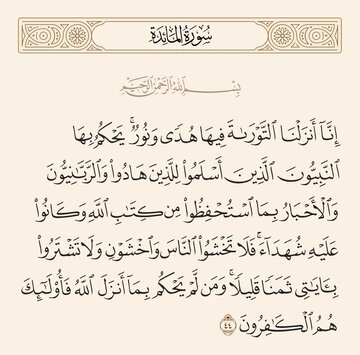 سُورَةُ المَائِدَة
بِسْمِ ٱللَّهِ ٱلرَّحْمَٰنِ ٱلرَّحِيمِ
إِنَّآ أَنزَلْنَا ٱلتَّوْرَىٰةَ فِيهَا هُدًى وَنُورٌ ۚ يَحْكُمُ بِهَا
ٱلنَّبِيُّونَ ٱلَّذِينَ أَسْلَمُوا۟ لِلَّذِينَ هَادُوا۟ وَٱلرَّبَّٰنِيُّونَ
وَٱلْأَحْبَارُ بِمَا ٱسْتُحْفِظُوا۟ مِن كِتَٰبِ ٱللَّهِ وَكَانُوا۟
عَلَيْهِ شُهَدَآءَ ۚ فَلَا تَخْشَوُا۟ ٱلنَّاسَ وَٱخْشَوْنِ وَلَا تَشْتَرُوا۟
بِـَٔايَٰتِى ثَمَنًا قَلِيلًا ۚ وَمَن لَّمْ يَحْكُم بِمَآ أَنزَلَ ٱللَّهُ فَأُو۟لَٰٓئِكَ
هُمُ ٱلْكَٰفِرُونَ ٤٤